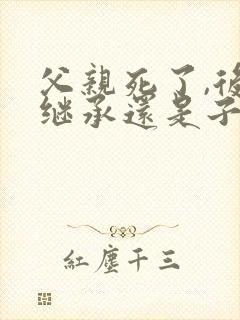 父親死了,後
继承還是子
紅塵千三